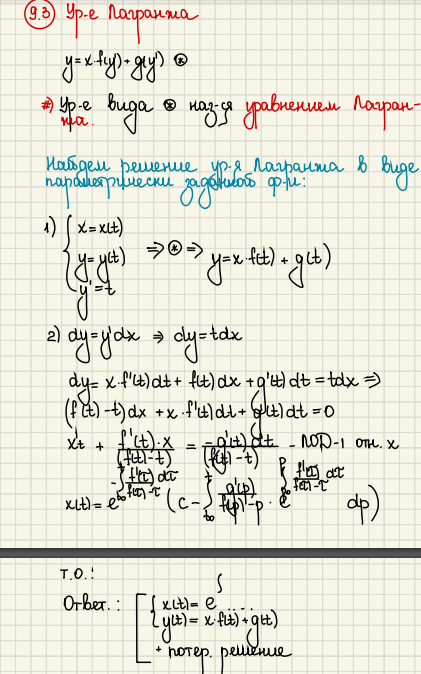 9.3 Ур-е Лагранжа
y = x·f(y') + g(y') ⊛
#) Ур-е вида ⊛ наз-ся уравнением Лагран-
жа.
Найдем решение ур-я Лагранжа в виде
параметрически заданной ф-и:
1) { x = x(t)
y = y(t) ⇒ ⊛ ⇒ y = x·f(t) + g(t)
y' = t
2) dy = y'dx ⇒ dy = tdx
dy = x·f'(t)dt + f(t)dx + g'(t)dt = tdx ⇒
(f(t) - t)dx + x·f'(t)dt + g'(t)dt = 0
x't + f'(t)·x / (f(t) - t) = -g'(t)dt / (f(t) - t) - ЛОД-1 отн. x
x(t) = e^(-∫_{t0}^{t} f'(τ)/(f(τ)-τ) dτ) (c - ∫_{t0}^{t} g'(p)/(f(p)-p) · e^(∫_{t0}^{p} f'(τ)/(f(τ)-τ) dτ) dp)
т.о.:
Ответ.: [ { x(t) = e^∫ ....
y(t) = x·f(t) + g(t)
+ потер. решение